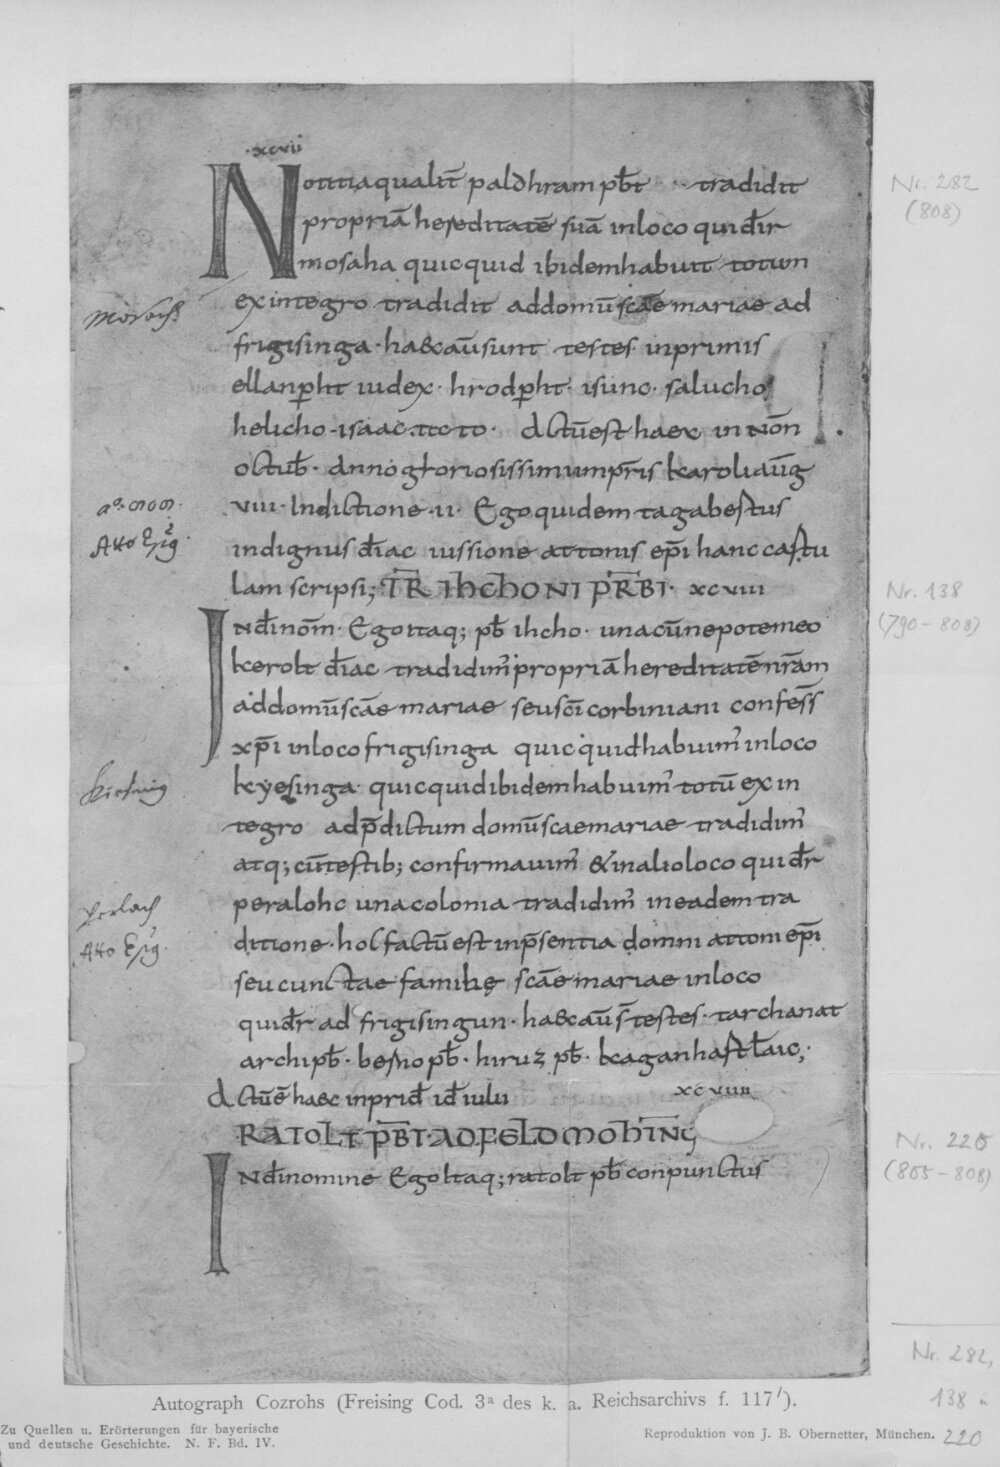 ·xcvii
Notitia qualit̄ paldhram pb̄t tradidit
propriā hereditatē suā in loco qui dr̄
mosaha quicquid ibidem habuit totum
ex integro tradidit ad domū scāe mariae ad
frigisinga · haec aū sunt testes inprimis
ellanp̱ht iudex · hrodp̱ht · isunc · salucho
helicho · isaac · tto · Actū est haec in noñ
octub̄ · Anno gloriosissimi imp̄ris karoli aūg
viii · Indictione · ii · Ego quidem tagabestus
indignus diāc iussione attonis ep̄i hanc cartu
lam scripsi; TR̄ IHCHONI PR̄BI · xcviii
In dī nom̄ · Ego itaq; pb̄ ihcho · una cū nepote meo
kerolt diāc tradidim' propriā hereditatē nr̄am
ad domū scāe mariae seu scī corbiniani confess̄
xp̄i in loco frigisinga quicquid habuim' in loco
kyesinga quicquid ibidem habuim' totū ex in
tegro ad p̄dictum domū scae mariae tradidim'
atq; cū testib; confirmavim' & in alio loco qui dr̄
peralohc una colonia tradidim' in eadem tra
ditione · hoc factū est in p̄sentia domni attoni ep̄i
seu cunctae familię scāe mariae in loco
qui dr̄ ad frigisingun · haec aū s̄ testes · tarchanat
archipb̄ · besho pb̄ · hiruz pb̄ · kaganhart laic;·
Actū ē haec in prid̄ id̄ iulii
xcviiii
RATOLT PB̄T · AD FELDMOHING
In dī nomine Ego itaq; ratolt pb̄ conpunctus
Morach
aº. 808.
Atto Epis
Kirsing
Perlach
Atto Epis
Nr. 282
(808)
Nr. 138
(790-808)
Nr. 220
(805-808)
Nr. 282,
138 u
220
Autograph Cozrohs (Freising Cod. 3ª des k. a. Reichsarchivs f. 117').
Zu Quellen u. Erörterungen für bayerische
und deutsche Geschichte. N. F. Bd. IV.
Reproduktion von J. B. Obernetter, München.